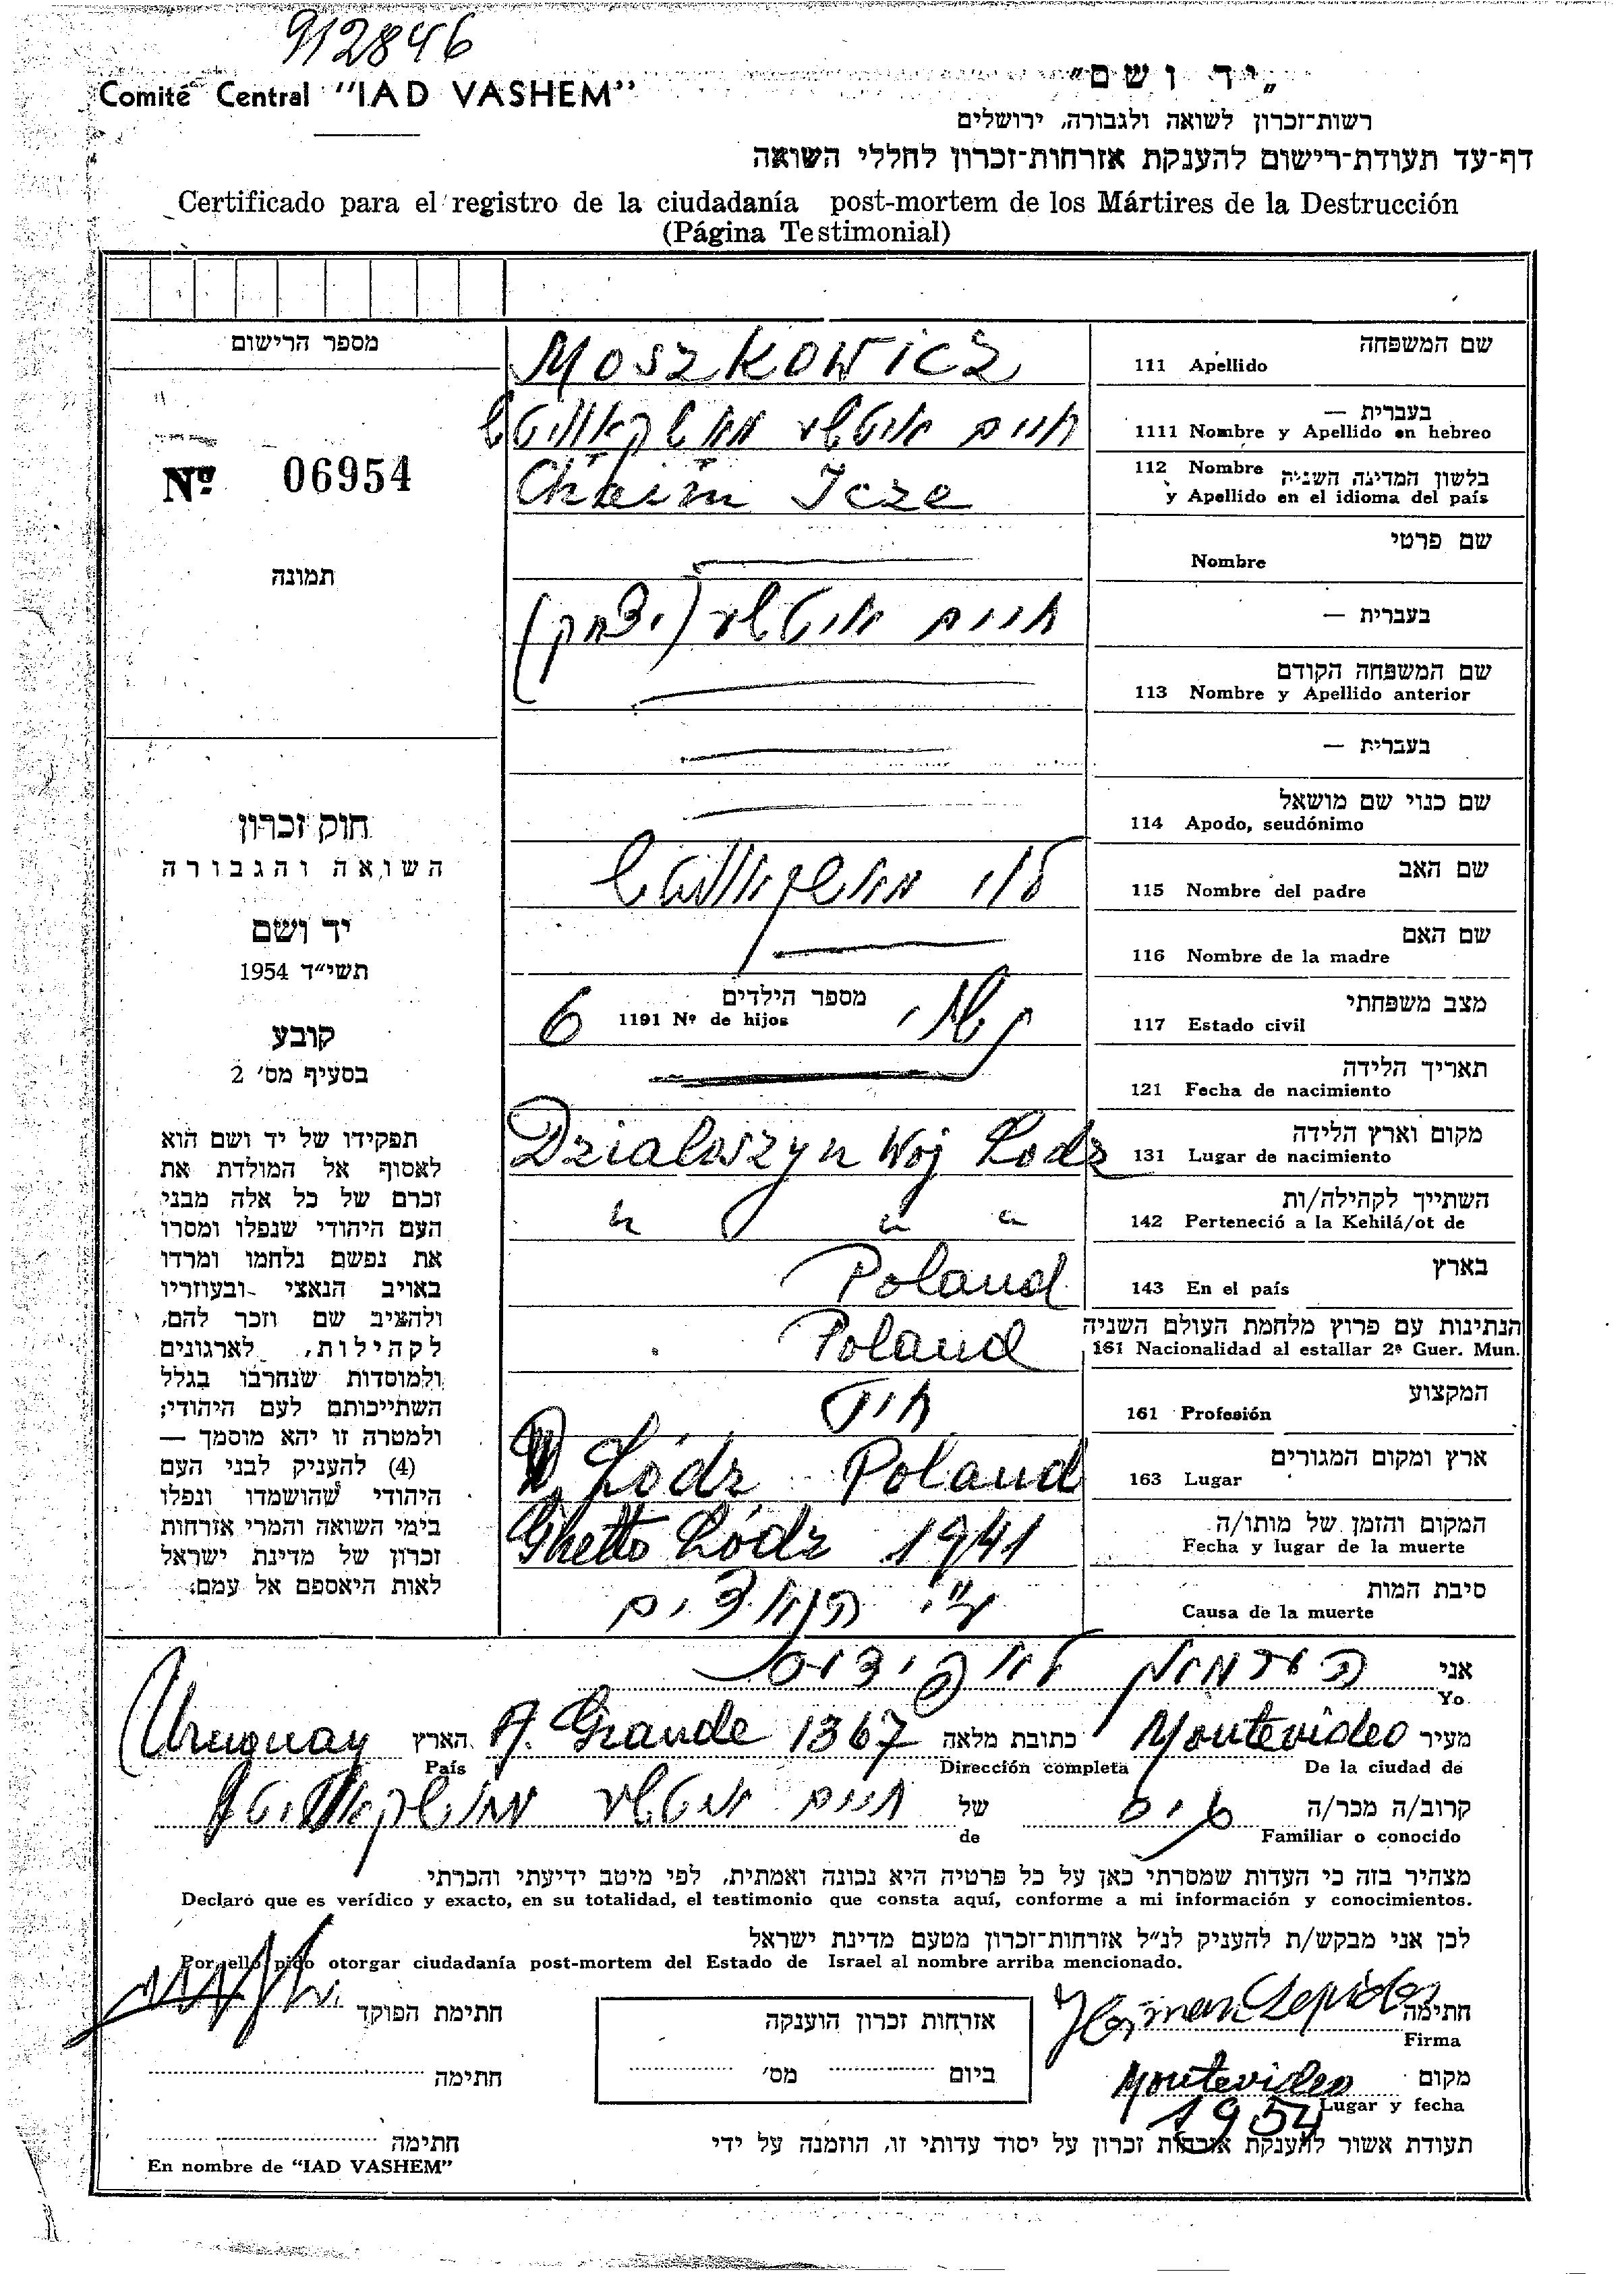 912846
Comité Central "IAD VASHEM"
„יד ושם"
רשות־זכרון לשואה ולגבורה, ירושלים
דף־עד תעודת־רישום להענקת אזרחות־זכרון לחללי השואה
Certificado para el registro de la ciudadanía post-mortem de los Mártires de la Destrucción
(Página Testimonial)
מספר הרישום
Nº 06954
תמונה
חוק זכרון
השואה והגבורה
יד ושם
תשי״ד 1954
קובע
בסעיף מס׳ 2
תפקידו של יד ושם הוא
לאסוף אל המולדת את
זכרם של כל אלה מבני
העם היהודי שנפלו ומסרו
את נפשם נלחמו ומרדו
באויב הנאצי ובעוזריו
ולהציב שם וזכר להם,
לקהילות, לארגונים
ולמוסדות שנחרבו בגלל
השתייכותם לעם היהודי;
ולמטרה זו יהא מוסמך —
(4) להעניק לבני העם
היהודי שהושמדו ונפלו
בימי השואה והמרי אזרחות
זכרון של מדינת ישראל
לאות היאספם אל עמם.
שם המשפחה
111 Apellido
Moszkowicz
בעברית —
1111 Nombre y Apellido en hebreo
חיים איטשע מאשקאוויטש
112 Nombre בלשון המדינה השניה
y Apellido en el idioma del país
Chaim Icze
שם פרטי
Nombre
בעברית —
חיים איטשע (יצחק)
שם המשפחה הקודם
113 Nombre y Apellido anterior
בעברית —
שם כנוי שם מושאל
114 Apodo, seudónimo
שם האב
115 Nombre del padre
לוי מושקאוויטש
שם האם
116 Nombre de la madre
מצב משפחתי
117 Estado civil
נשוי
מספר הילדים
1191 Nº de hijos
6
תאריך הלידה
121 Fecha de nacimiento
מקום וארץ הלידה
131 Lugar de nacimiento
Dzialoszyn Woj Lodz
השתייך לקהילה/ות
142 Perteneció a la Kehilá/ot de
" " "
בארץ
143 En el país
Poland
הנתינות עם פרוץ מלחמת העולם השניה
161 Nacionalidad al estallar 2ª Guer. Mun.
Poland
המקצוע
161 Profesión
חיט
ארץ ומקום המגורים
163 Lugar
Łódz Poland
המקום והזמן של מותו/ה
Fecha y lugar de la muerte
Ghetto Łódz 1941
סיבת המות
Causa de la muerte
ע״י הנאצים
אני הערמאן לאפידוס
Yo
מעיר Montevideo כתובת מלאה A. Grande 1367 הארץ Uruguay
De la ciudad de Dirección completa País
קרוב/ה מכר/ה של חיים איטשע מאשקאוויטש
Familiar o conocido de
מצהיר בזה כי העדות שמסרתי כאן על כל פרטיה היא נכונה ואמתית, לפי מיטב ידיעתי והכרתי
Declaró que es verídico y exacto, en su totalidad, el testimonio que consta aquí, conforme a mi información y conocimientos.
לכן אני מבקש/ת להעניק לנ״ל אזרחות־זכרון מטעם מדינת ישראל
Por ello pido otorgar ciudadanía post-mortem del Estado de Israel al nombre arriba mencionado.
חתימה
Firma
מקום Montevideo
Lugar y fecha
1954
אזרחות זכרון הוענקה
ביום מס׳
חתימת הפוקד
חתימה
תעודת אשור להענקת אזרחות זכרון על יסוד עדותי זו, הוזמנה על ידי
חתימה
En nombre de "IAD VASHEM"